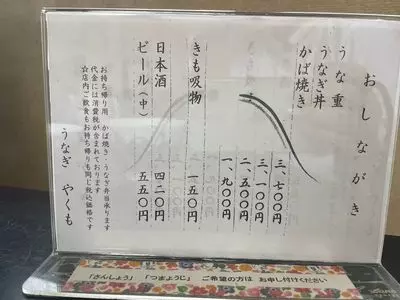 おしながき
うな重
うなぎ丼
かば焼き
三、七〇〇円
三、一〇〇円
二、五〇〇円
一、九〇〇円
きも吸物 一五〇円
日本酒 四二〇円
ビール(中) 五五〇円
お持ち帰り用 かば焼き・うなぎ弁当承ります
代金には消費税が含まれております
☆店内ご飲食もお持ち帰りも同じ税込価格です
うなぎ やくも
「さんしょう」「つまようじ」 ご希望の方は お申し付けください